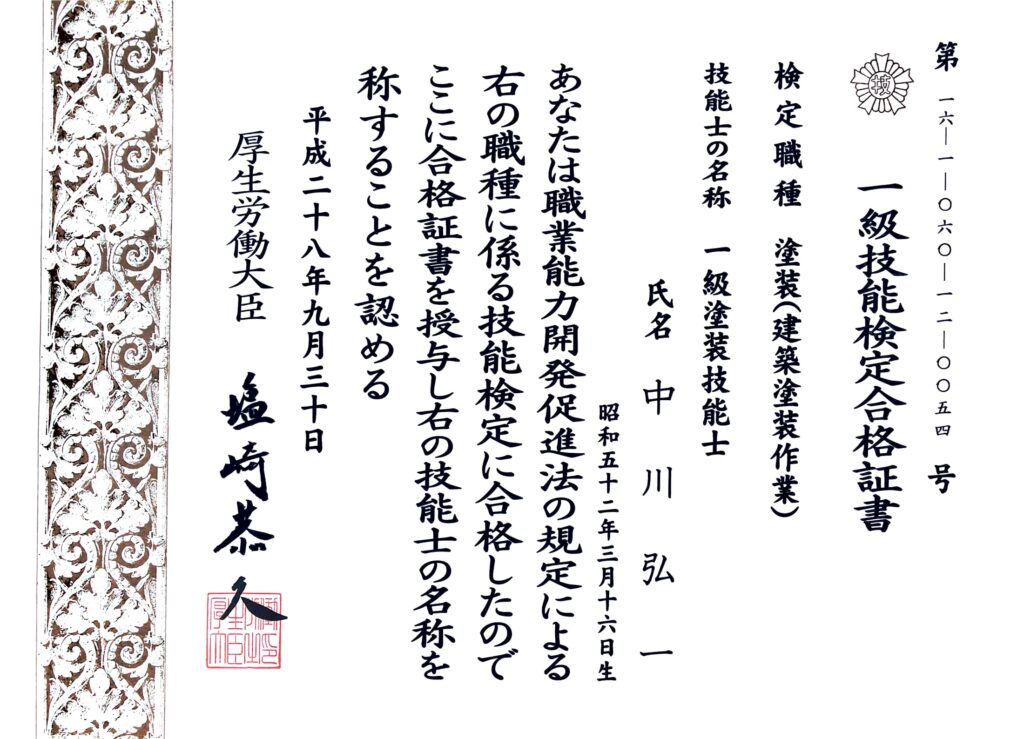 第 一六―一―〇六〇―一二―〇〇五四 号
技
一級技能検定合格証書
検定職種 塗装(建築塗装作業)
技能士の名称 一級塗装技能士
氏名 中川弘一
昭和五十二年三月十六日生
あなたは職業能力開発促進法の規定による
右の職種に係る技能検定に合格したので
ここに合格証書を授与し右の技能士の名称を
称することを認める
平成二十八年九月三十日
厚生労働大臣 塩崎恭久